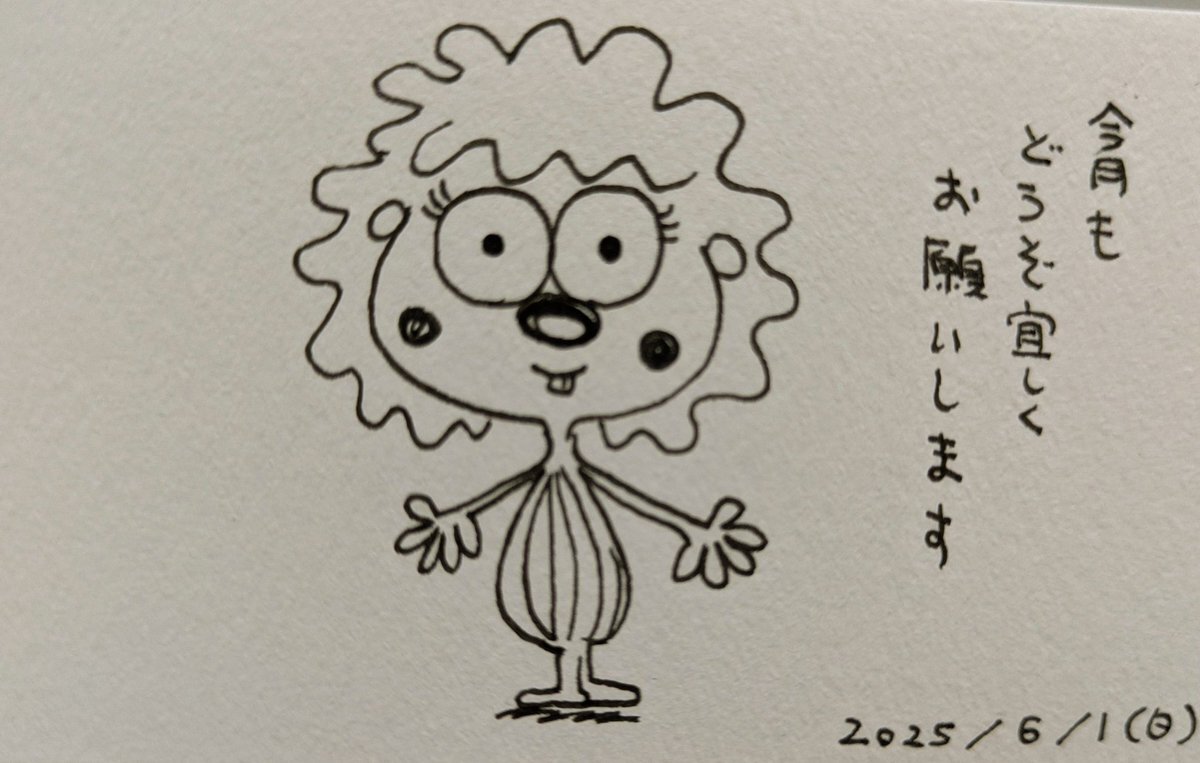 今月も
どうぞ宜しく
お願いします
2025/6/1(日)